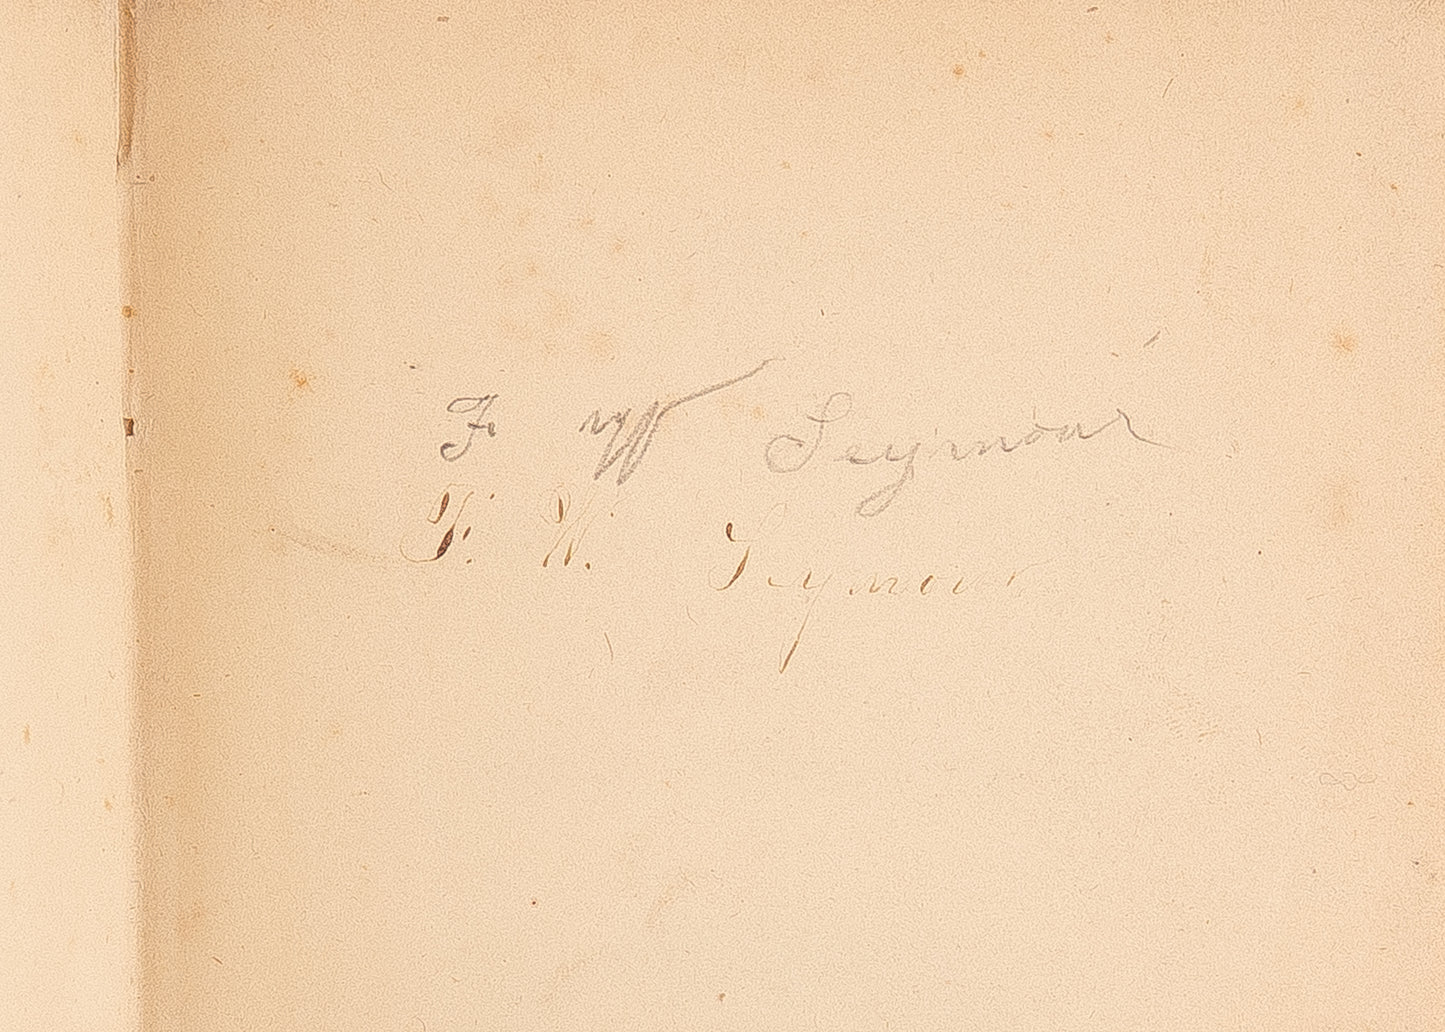 F W Seymour
F. W. Seymour